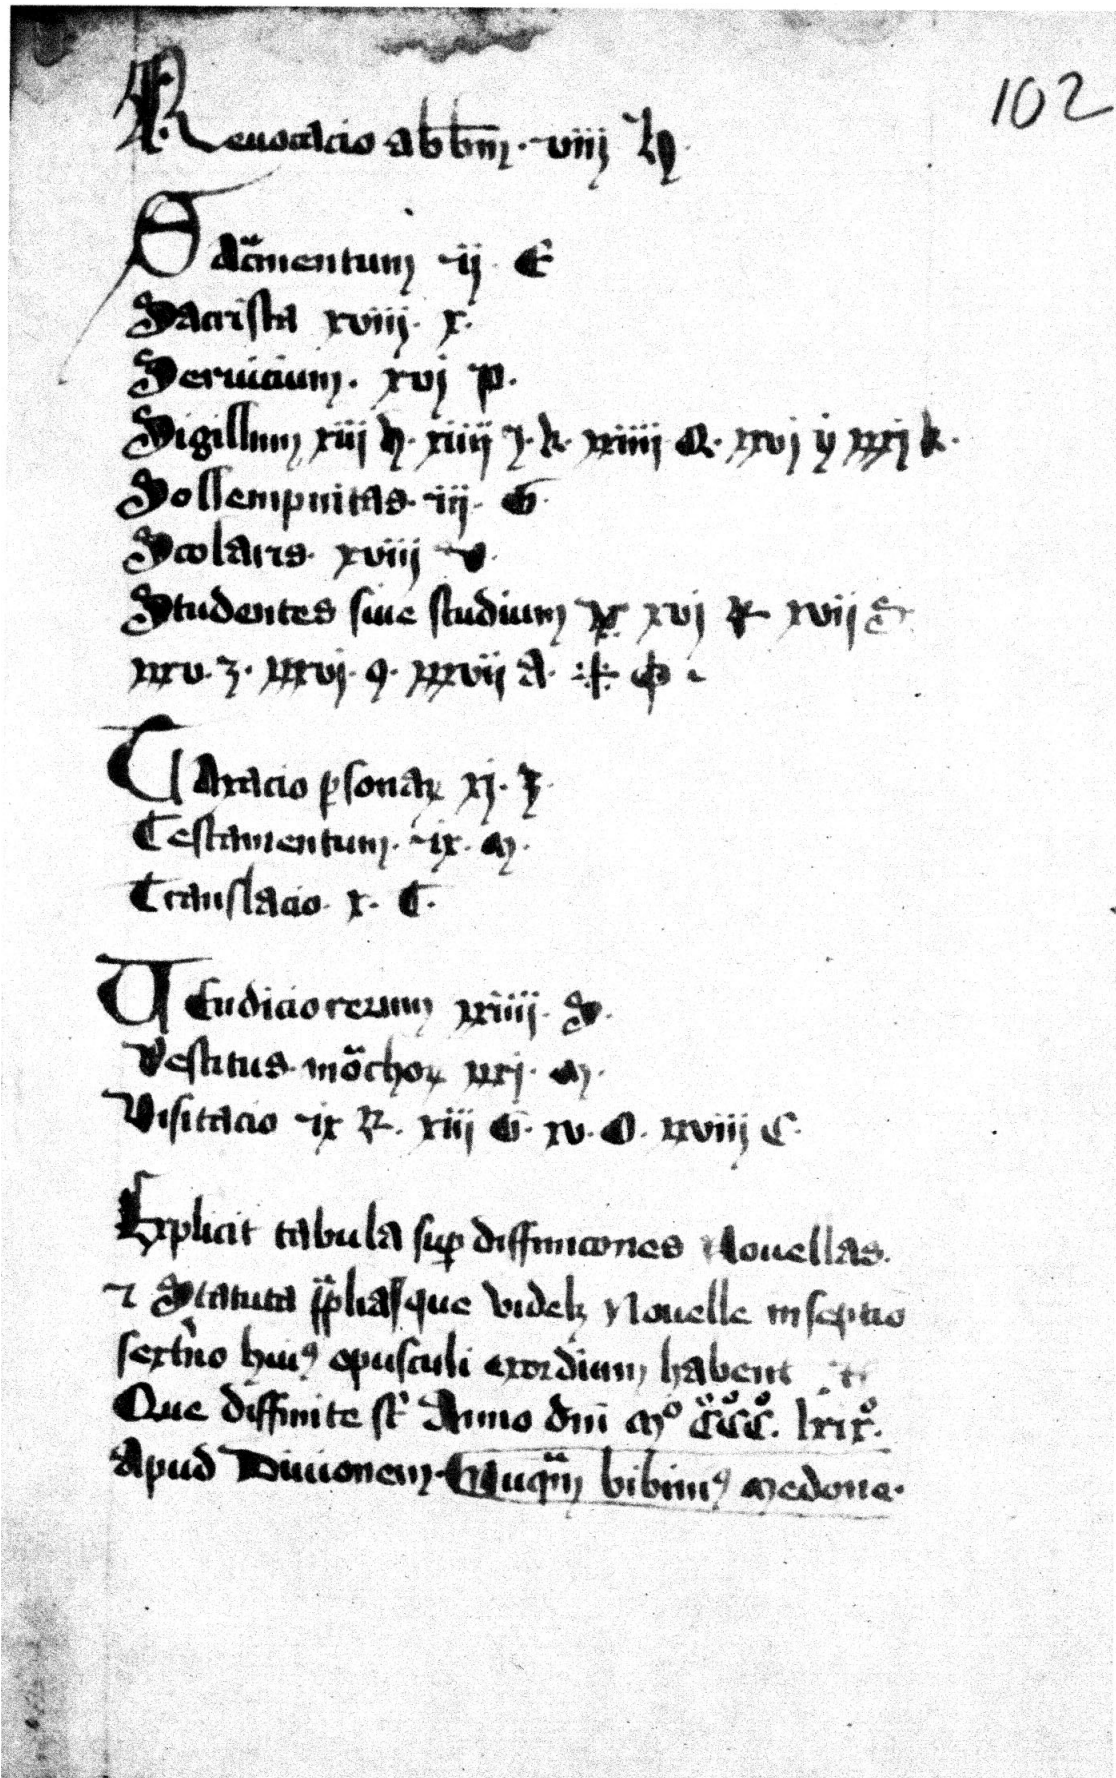 102
Reuocacio abbm. viiij h
Sacmentum ij. E
Sacrista xviij. x.
Seruicium. xvj p.
Sigillum xiij h. xiiij j. k. xxiiij Q. xxvj y xxxj k.
Sollempnitas. iij. G.
Scolaris. xviij v.
Studentes siue studium xvj R xvij S
xxxv. z. xxxvj. 9. xxxvij A.
TAxacio psonaꝝ xj. z.
Testamentum. ix. m.
Translacio. x. C.
UEndicio rerum xxiiij. S.
Vestitus mochoꝝ xxj. m.
Visitacio ix R. xiij G. xv. O. xxviij C.
Explicit tabula sup diffinicones Nouellas.
⁊ Statuta que videlꝫ Nouelle in septio
sextno huiꝰ opusculi exordium habent
Que diffinite st Anno dni mͦ CCC. lxix.
Apud Diuionem. bibimꝰ medone.